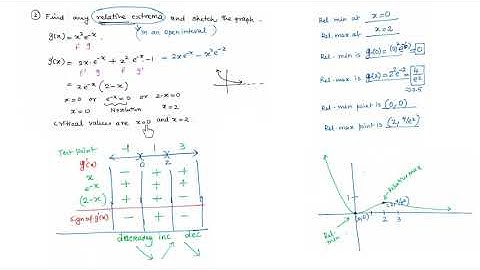 ③ Find any relative extrema and sketch the graph.
(in an open interval)
g(x) = x²e⁻ˣ
f g
g'(x) = 2x·e⁻ˣ + x² e⁻ˣ·-1 = 2xe⁻ˣ - x²e⁻²
f' g f g'
= xe⁻ˣ (2-x)
x=0 or e⁻ˣ=0 or 2-x=0
x=0 No solution x=2
critical values are x=0 and x=2
Test point -1 1 3
0 2
g'(x)
x - + +
e⁻ˣ + + +
(2-x) + + -
Sign of g'(x) - + -
decreasing inc dec
Rel. min at x=0
Rel. max at x=2
Rel. min is g(0)=(0²e⁰)=0
Rel. max. is g(2)=2²e⁻²=4/e²
Rel. min point is (0,0)
Rel. max point is (2, 4/e²)
Relative max
1
(0,0)
2 3
Rel. min